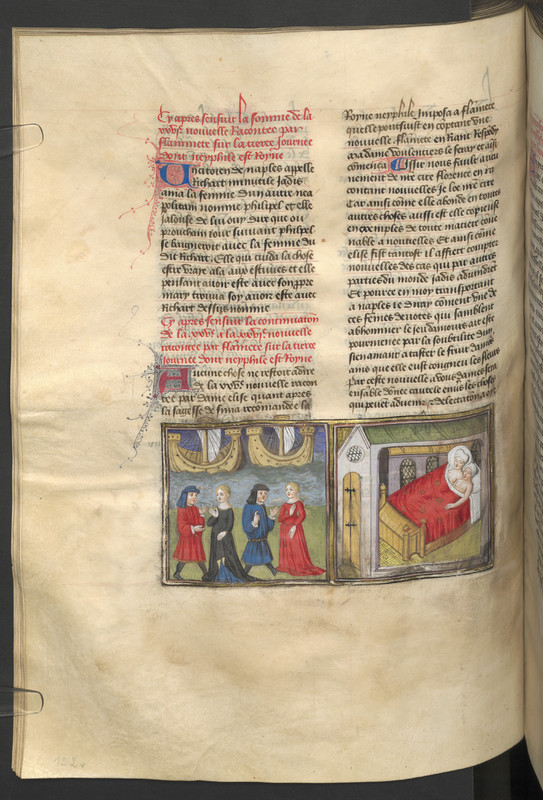 Cy apres sensuit la somme de la
nouvelle Racontee par
flammete sur la tierce Journee
dont neyphile est Royne
Un citoien de naples appelle
Richart minutile Jadis
ama la femme dun autre nea
politain nomme philipel et elle
Jalouse de lui ouy dire que ou
prouchain iour suivant philipel
se baigneroit avec la femme du
dit Richart. Elle qui cuida la chose
estre vraye ala aux estuves et elle
cuidant avoir este avec son ppre
mary trouva soy avoir este avec
Richart dessus nomme
Cy apres sensuit la continuation
de la nouvelle
racontee par flamete sur la tierce
Journee dont neyphile est Royne
Aucune chose ne restoit adire
de la nouvelle racon
tee par dame elise quant apres
la sagesse de recomandee la
Royne neyphile Imposa a flamete
quelle poursuist en comptant une
nouvelle. flamete en Riant Respondy
madame voulentiers le feray et ainsi
comenca Il nous fault aucu
nement de cite florence en ra
contant nouvelles Je loe cite
Car ainsi come elle abonde en toutes
autres choses aussi est elle copieuse
en exemples de toute matiere conve
nable a nouvelles Et ainsi come
elise fist tantost il affiert compter
nouvelles des cas qui par autres
parties du monde Jadis advindrent
Et pource en moy transportant
a naples Je diray coment une de
ces femes devotes qui semblent
abhominer le Jeu damours ait este
pourmenee par la soubtilite dun
sien amant a taster le fruit damours
ains que elle eust congneu les fleurs
Par ceste nouvelle a vous dames sera
ensable donee cautele enuis les choses
qui peuent advenir. Delectacion
122v